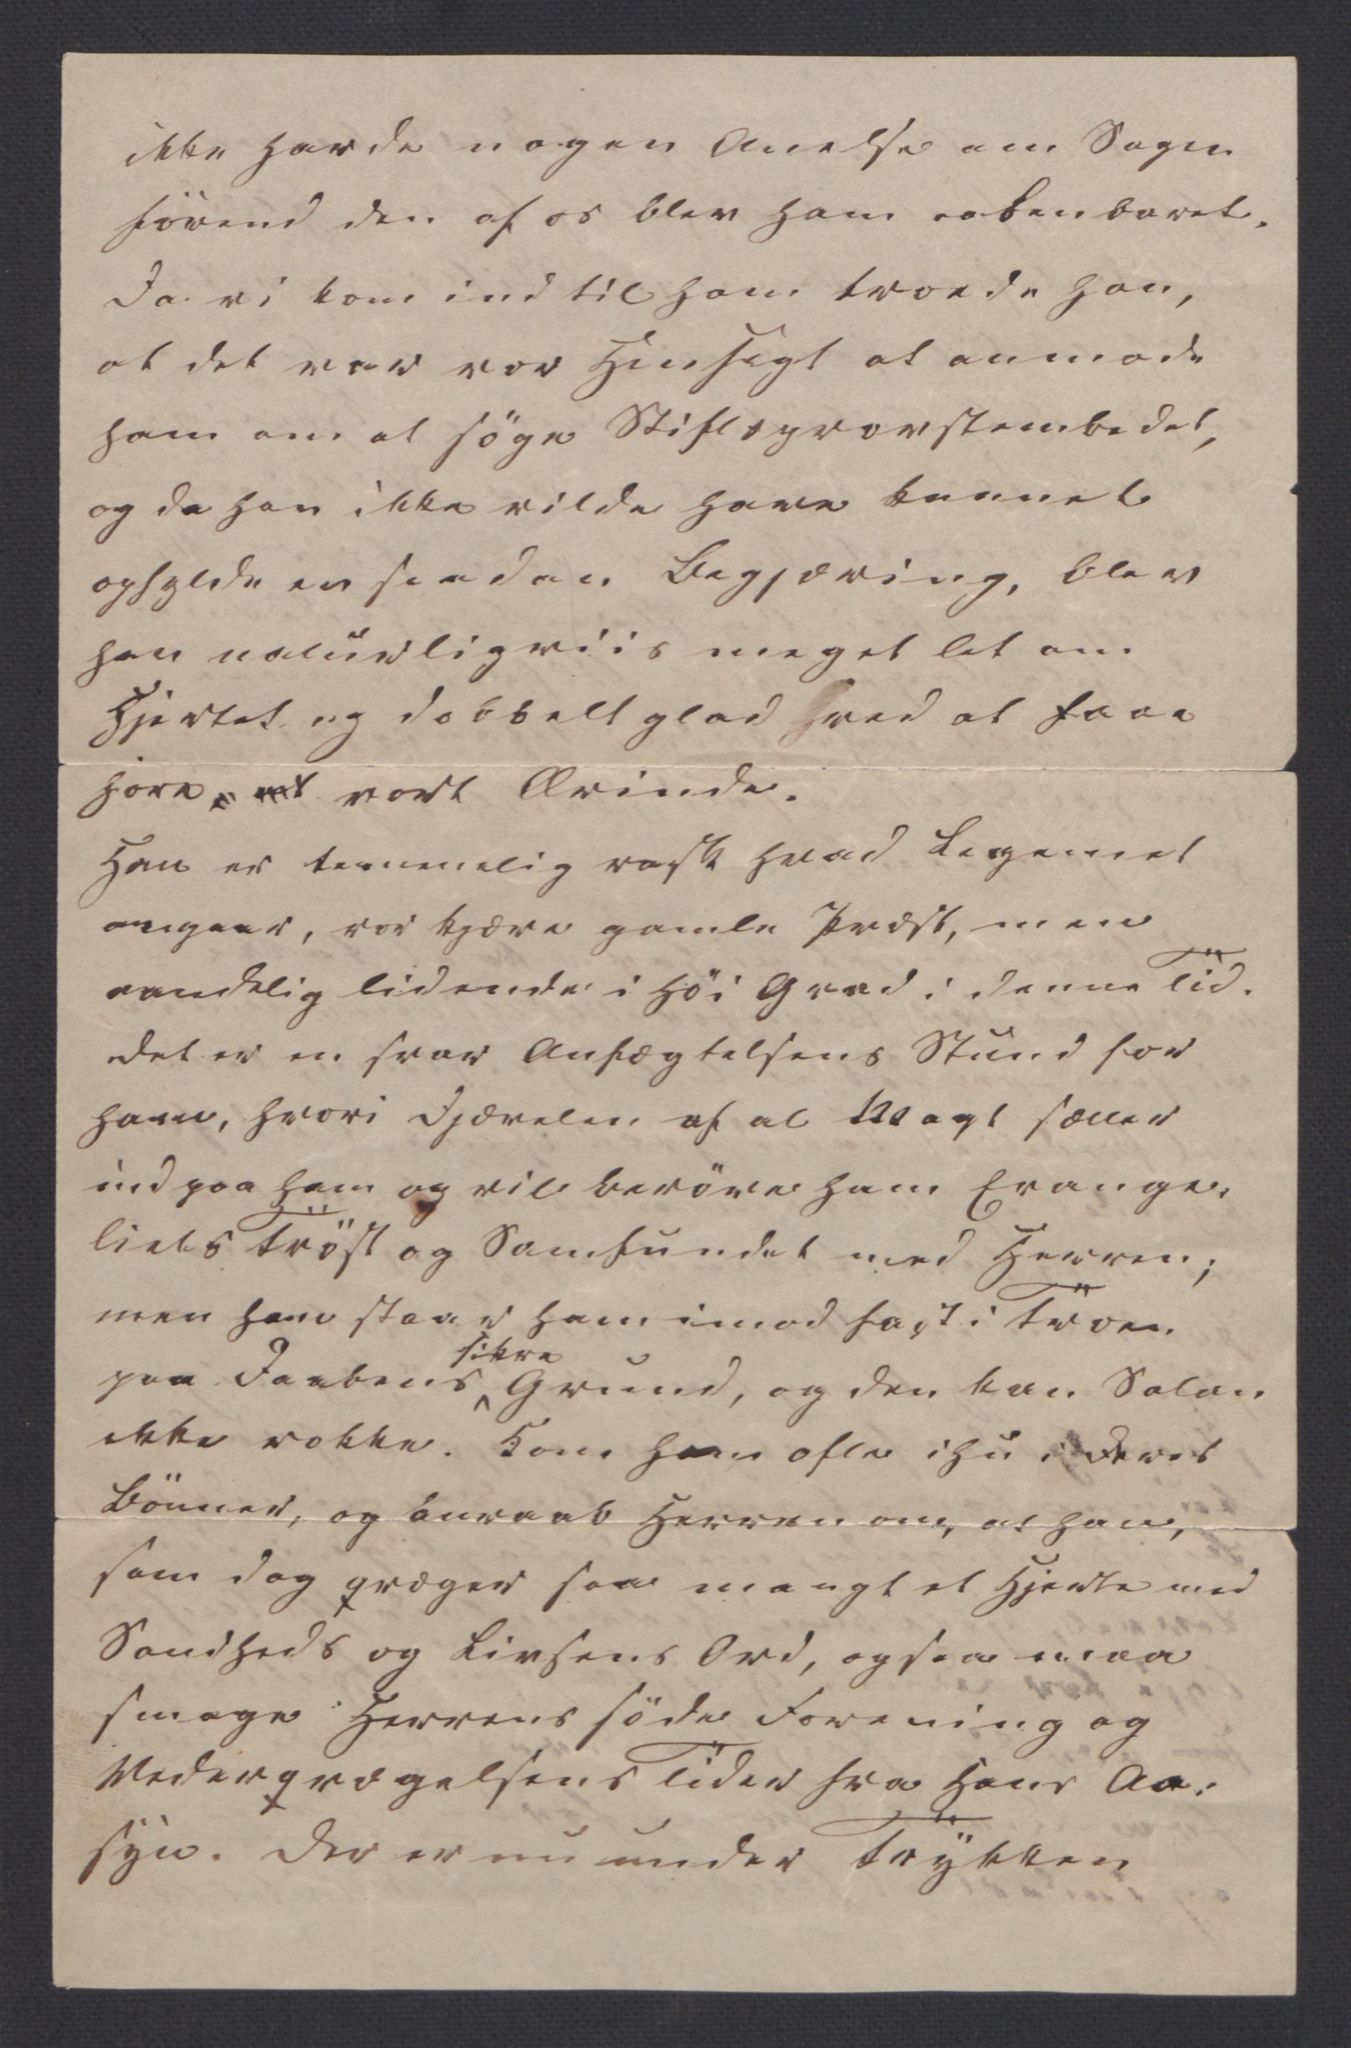 ikke havde nogen Anelse om Sagen
förend den af os blev ham aabenbaret.
Da vi kom ind til ham troede han,
at det var vor Hensigt at anmode
ham om at söge Stiftsprovstembedet,
og da han ikke vilde have kunnet
opfylde en saadan Begjæring, blev
han naturligviis meget let om
Hjertet og dobbelt glad ved at faae
höre vort Ærinde.
Han er temmelig rask hvad Legemet
angaaer, vor kjære gamle Præst, men
aandelig lidende i höi Grad i denne Tid.
Det er en svar Anfægtelsens Stund for
ham, hvori Djævelen af al Magt sætter
ind paa ham og vil beröve ham Evange-
liets Tröst og Samfundet med Herren;
men han staar ham imod fast i Troen
paa Daabens sikre Grund, og den kan Satan
ikke rokke. Kom ham ofte ihu i Deres
Bönner, og anraab Herren om, at han,
som dog qvæger saa mangt et Hjerte med
Sandheds og Livsens Ord, ogsaa maa
smage Herrens söde Forening og
Vederqvægelsens Tider fra Hans Aa-
syn. Der er nu under Trykken